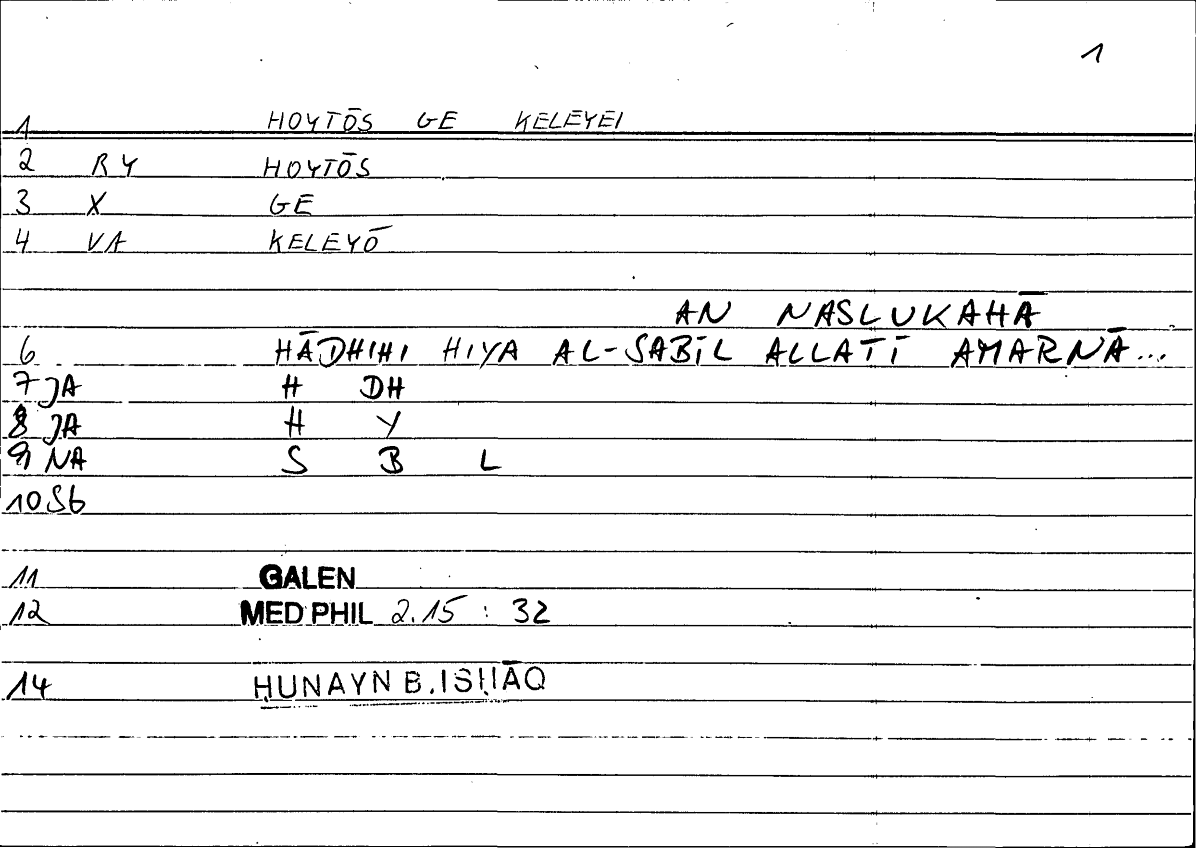 1
1 HOYTŌS GE KELEYEI
2 RY HOYTŌS
3 X GE
4 VA KELEYŌ
AN NASLUKAHĀ
6 HĀDHIHI HIYA AL-SABĪL ALLATĪ AMARNĀ...
7 JA H DH
8 JA H Y
9 NA S B L
10 S6
11 GALEN
12 MED PHIL 2.15 : 32
14 ḤUNAYN B. ISḤĀQ